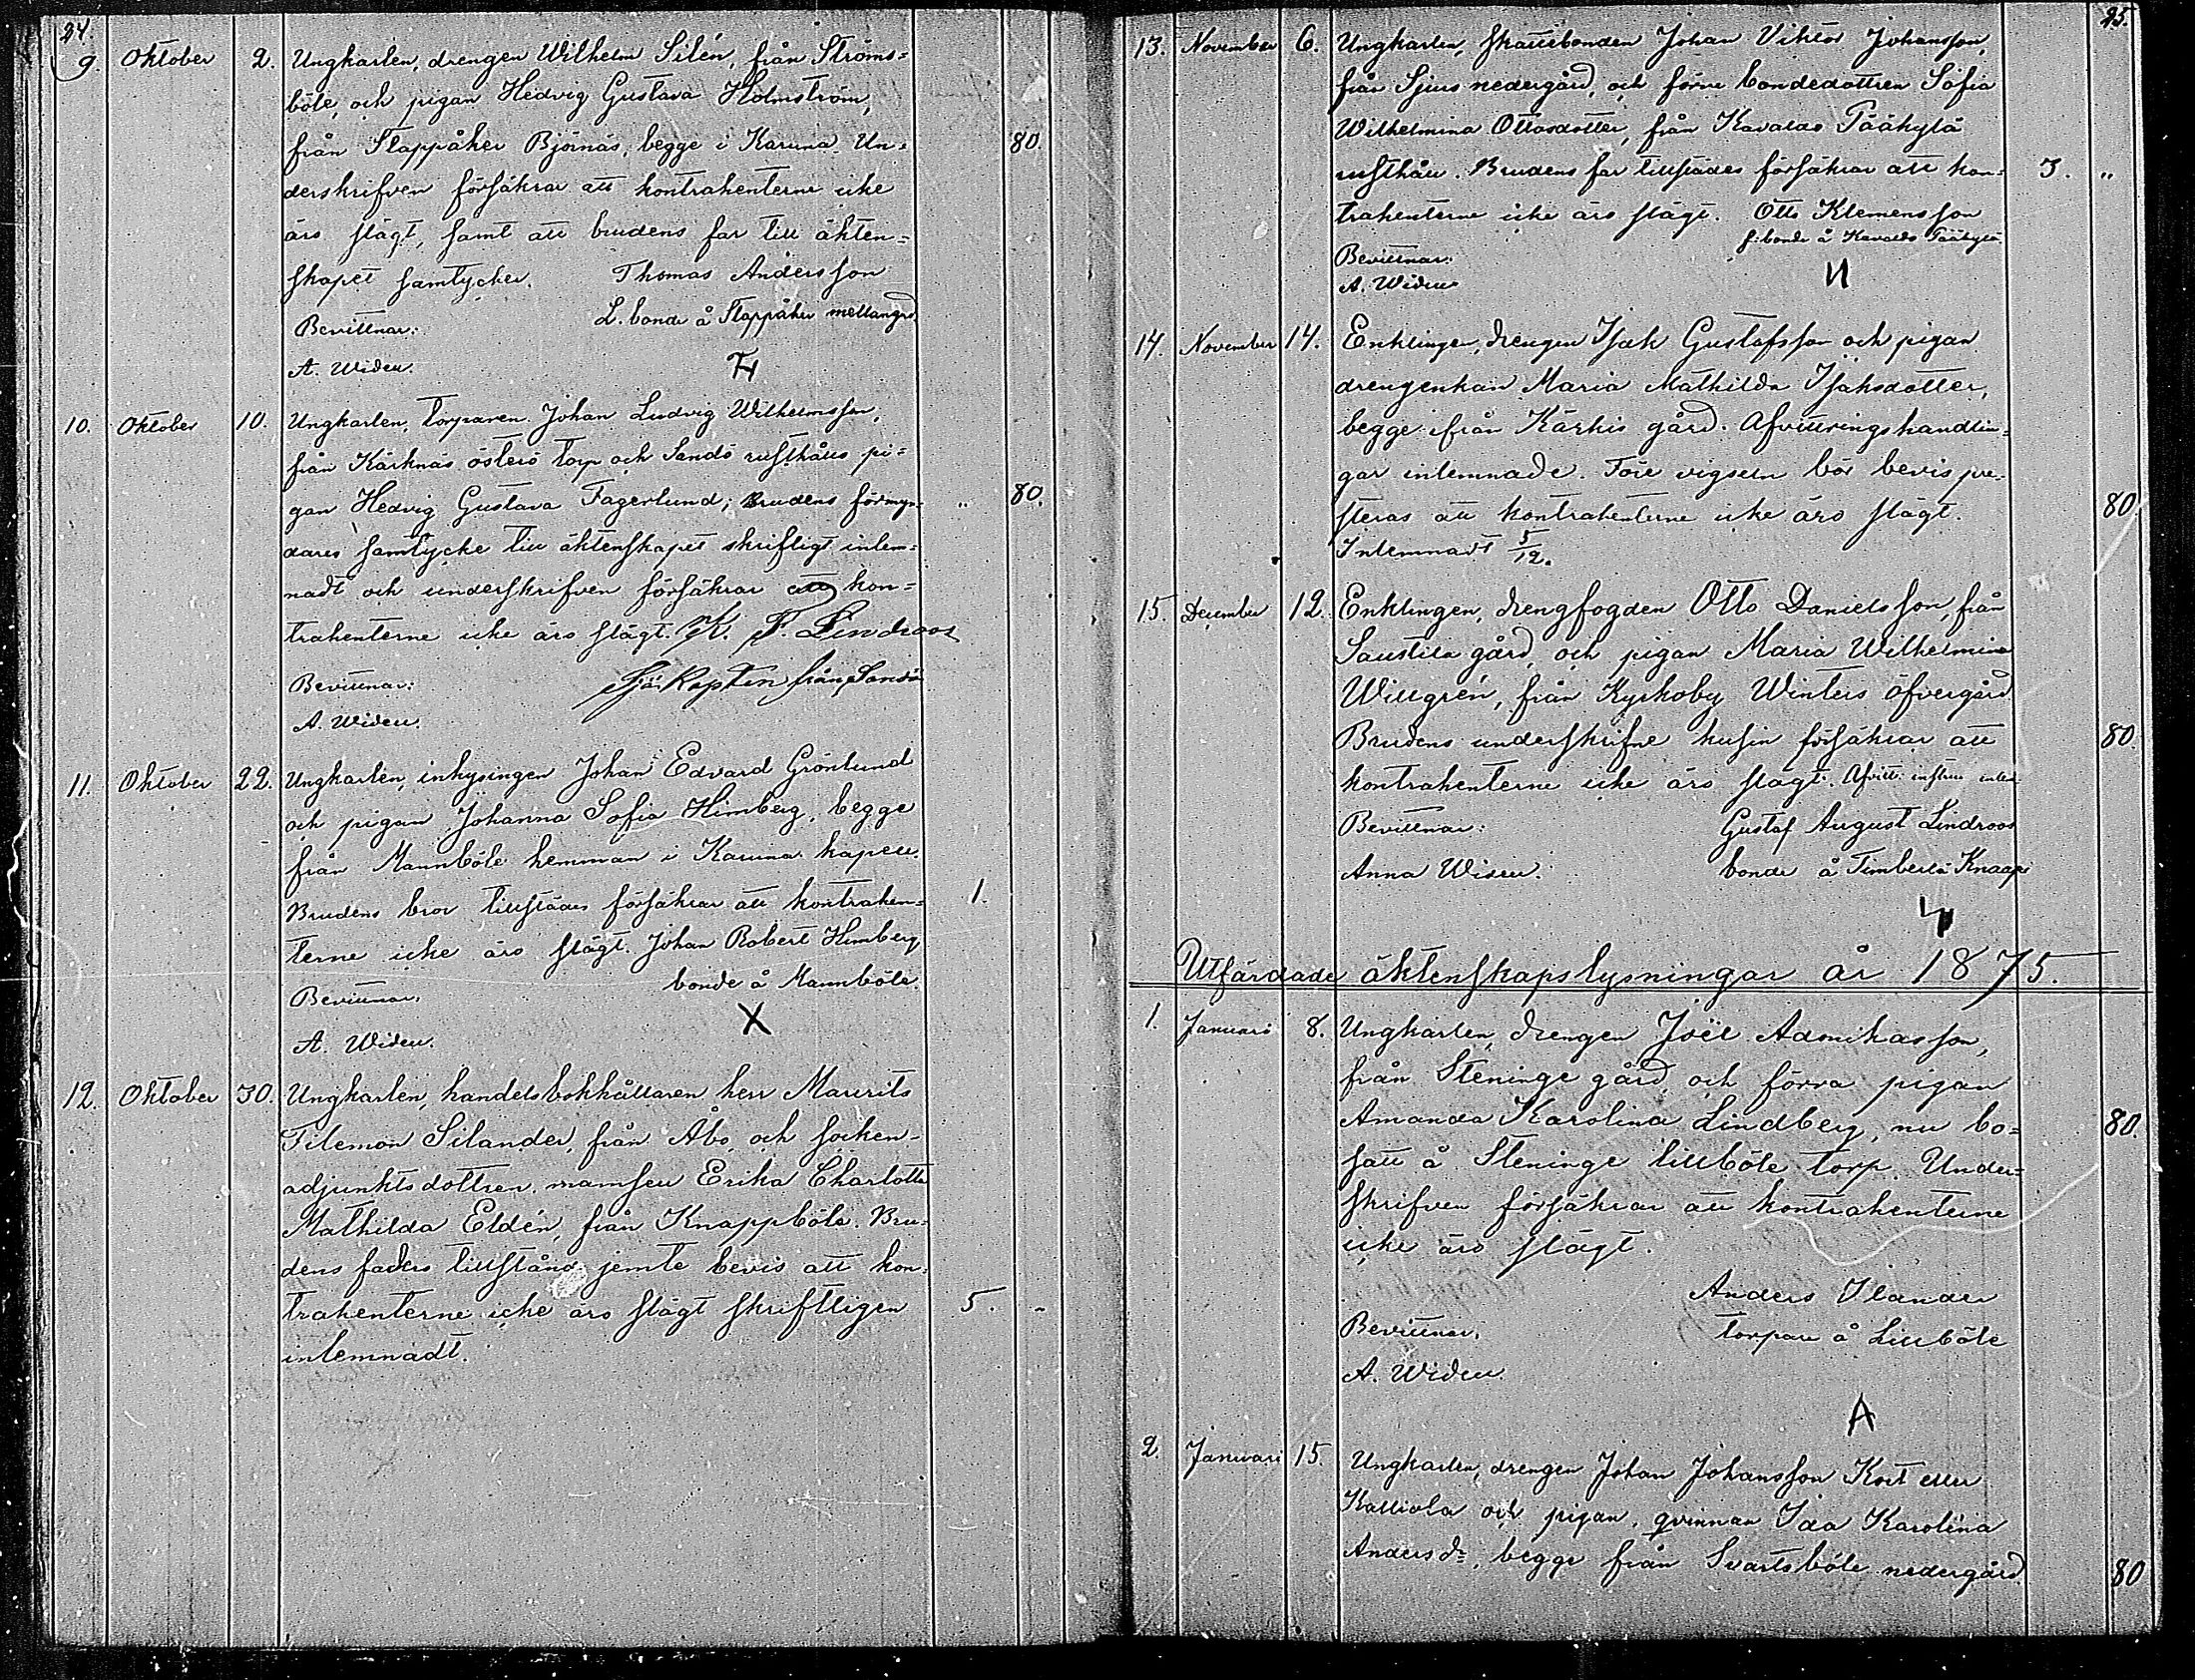 24.
9. Oktober 2. Ungkarlen, drengen Wilhelm Silén, från Ströms=
böle, och pigan Hedvig Gustava Holmström,
från Stappåker Björnäs, begge i Karuna. Un= 80.
derskrifven försäkrar att kontrahenterne icke
äro slägt, samt att brudens far till äkten=
skapet samtycker. Thomas Andersson
Bevittnar: L. bonde å Stappåker mellangrd.
A. Widen.
10. Oktober 10. Ungkarlen, torparen Johan Ludvig Wilhelmsson,
från Kärknäs österö torp och Sandö rusthålls pi=
gan Hedvig Gustava Fagerlund; Brudens förmyn= " 80.
dares samtycke till äktenskapet skrifligt inlem=
nadt och underskrifven försäkrar att kon=
trahenterne icke äro slägt. K. F. Lindroos
Bevittnar: Sjö Kapten från Sandö
A. Widen.
11. Oktober 22. Ungkarlen, inhysingen Johan Edvard Grönlund
och pigan Johanna Sofia Himberg, begge
från Mannböle hemman i Karuna kapell.
Brudens bror tillstädes försäkrar att kontrahen= 1.
terne icke äro slägt. Johan Robert Himberg
bonde å Mannböle.
Bevittnar.
X
A. Widen.
12. Oktober 30. Ungkarlen, handelsbokhållaren herr Maurits
Filemon Silander, från Åbo, och socken-
adjunktsdottren, mamsell Erika Charlotta
Mathilda Eldén, från Knappböle. Bru=
dens faders tillstånd jemte bevis att kon=
trahenterne icke äro slägt skriftligen 5. -
inlemnadt.
25.
13. November 6. Ungkarlen, skattebonden Johan Viktor Johansson,
från Sjurs nedergård, och förre bondedottren Sofia
Wilhelmina Ottosdotter, från Kavaldo Pääkylä
rusthåll. Brudens far tillstädes försäkrar att kon= 3. "
trahenterne icke äro slägt. Otto Klemensson
f. bonde å Kavaldo Pääkylä
Bevittnar:
A. Widen
14. November 14. Enklingen, drengen Isak Gustafsson och pigan
drengenkan Maria Mathilda Isaksdotter,
begge från Kärkis gård. Afvittringshandlin=
gar inlemnade. Före vigseln bör bevis pre=
steras att kontrahenterne icke äro slägt. 80
Inlemnadt 5/12.
15. December 12. Enklingen, drengfogden Otto Danielsson, från
Saustila gård, och pigan Maria Wilhelmina
Willgrén, från Kyrkoby Winters öfvergård
Brudens underskrifne kusin försäkrar att 80.
kontrahenterne icke äro slägt. Afvitt.
Bevittnar: Gustaf August Lindroos
Anna Widen. bonde å Timberla Knaapi
Utfärdade äktenskapslysningar år 1875.
1. Januari 8. Ungkarlen, drengen Joël Adonikasson,
från Steninge gård, och förra pigan
Amanda Karolina Lindberg, nu bo= 80.
satt å Steninge Lillböle torp. Under=
skrifven försäkrar att kontrahenterne
icke äro slägt.
Anders Ilander
Bevittnar. torpare å Lillböle
A. Widen.
A
2. Januari 15. Ungkarlen, drengen Johan Johansson Kort eller
Kalliola och pigan, qvinnan Ida Karolina
Andersdr, begge från Svartsböle nedergård. 80